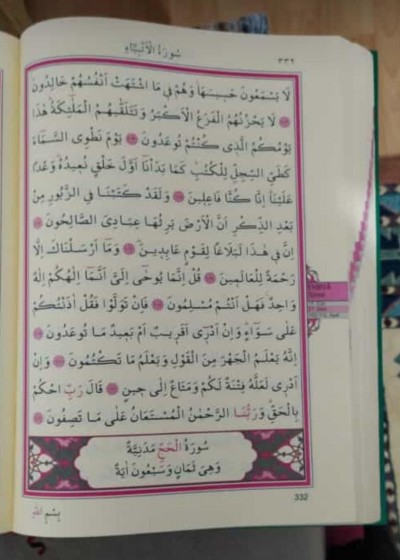 سُورَةُ الْاَنْبِيَاءِ
٣٣٢
لَا يَسْمَعُونَ حَسِيسَهَا وَهُمْ فِي مَا اشْتَهَتْ اَنْفُسُهُمْ خَالِدُونَ
لَا يَحْزُنُهُمُ الْفَزَعُ الْاَكْبَرُ وَتَتَلَقّٰيهُمُ الْمَلٰٓئِكَةُ هٰذَا
يَوْمُكُمُ الَّذِي كُنْتُمْ تُوعَدُونَ يَوْمَ نَطْوِى السَّمَاءَ
كَطَيِّ السِّجِلِّ لِلْكُتُبِ كَمَا بَدَأْنَا اَوَّلَ خَلْقٍ نُعِيدُهُ وَعْدًا
عَلَيْنَا اِنَّا كُنَّا فَاعِلِينَ وَلَقَدْ كَتَبْنَا فِي الزَّبُورِ مِنْ
بَعْدِ الذِّكْرِ اَنَّ الْاَرْضَ يَرِثُهَا عِبَادِيَ الصَّالِحُونَ
اِنَّ فِي هٰذَا لَبَلَاغًا لِقَوْمٍ عَابِدِينَ وَمَا اَرْسَلْنَاكَ اِلَّا
رَحْمَةً لِلْعَالَمِينَ قُلْ اِنَّمَا يُوحٰٓى اِلَيَّ اَنَّمَا اِلٰهُكُمْ اِلٰهٌ
وَاحِدٌ فَهَلْ اَنْتُمْ مُسْلِمُونَ فَاِنْ تَوَلَّوْا فَقُلْ اٰذَنْتُكُمْ
عَلٰى سَوَاءٍ وَاِنْ اَدْرِى اَقَرِيبٌ اَمْ بَعِيدٌ مَا تُوعَدُونَ
اِنَّهُ يَعْلَمُ الْجَهْرَ مِنَ الْقَوْلِ وَيَعْلَمُ مَا تَكْتُمُونَ وَاِنْ
اَدْرِى لَعَلَّهُ فِتْنَةٌ لَكُمْ وَمَتَاعٌ اِلٰى حِينٍ قَالَ رَبِّ احْكُمْ
بِالْحَقِّ وَرَبُّنَا الرَّحْمٰنُ الْمُسْتَعَانُ عَلٰى مَا تَصِفُونَ
سُورَةُ الْحَجِّ مَدَنِيَّةٌ
وَهِيَ ثَمَانٍ وَسَبْعُونَ اٰيَةً
332
بِسْمِ اللّٰهِ